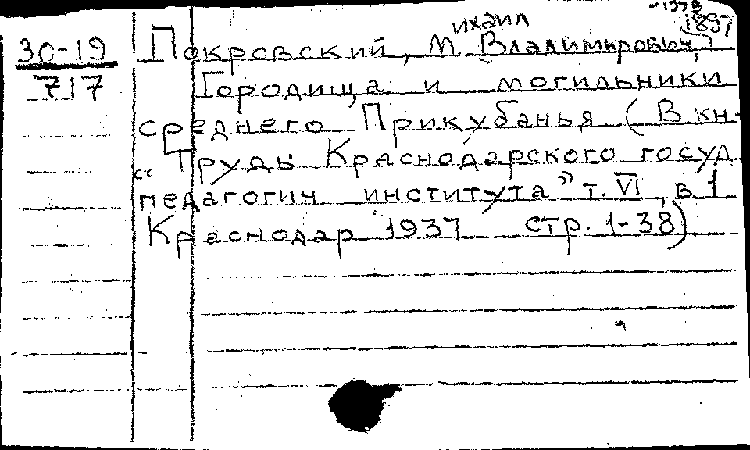 ихаил
1897
30-19 Покровский, М. Владимирович,
717 Городища и могильники
среднего Прикубанья (В кн.
„Труды Краснодарского госуд
педагогич института" т. VI, в 1
Краснодар 1937 стр. 1-38)